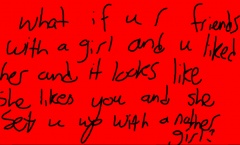 what if u r friends
with a girl and u liked
her and it looks like
she likes you and she
set u up with a nother
girl?